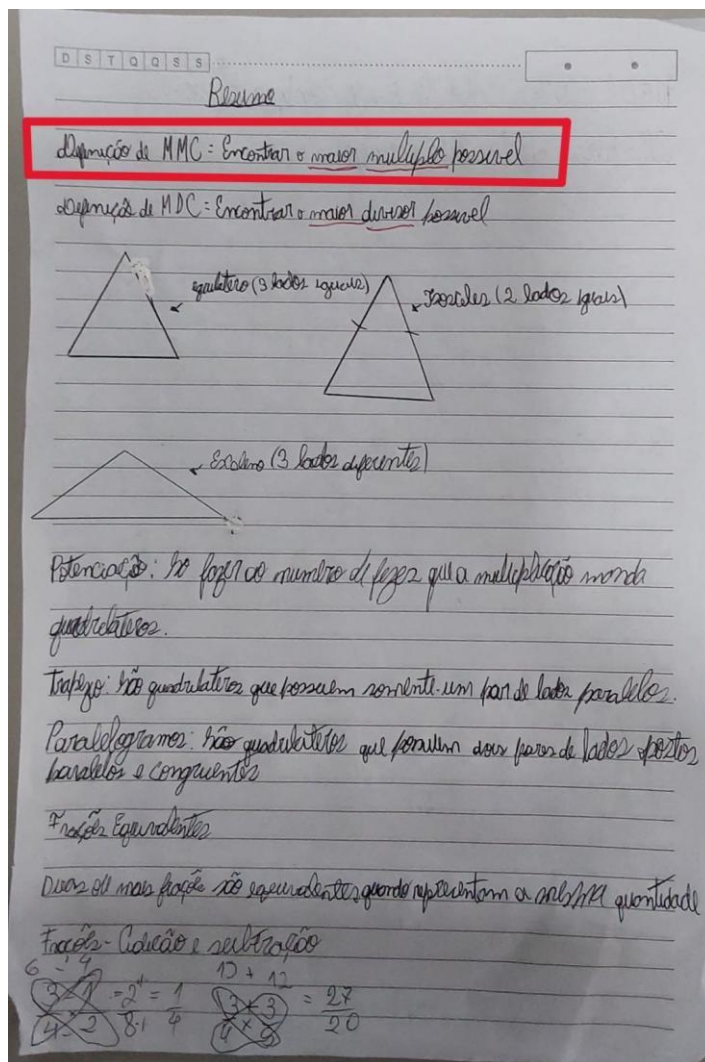 D S T Q Q S S
Resumo
Definição de MMC = Encontrar o maior multiplo possivel
Definição de MDC = Encontrar o maior divisor possivel
equilatero (3 lados iguais)
Isosceles (2 lados iguais)
Escaleno (3 lados diferentes)
Potenciação: So fazer ao numero de fezes que a multiplicação manda
quadrelateros.
Trapezo: São quadrulateros que possuem somente um par de lados paralelos.
Paralelogramos: São quadrulateros que possuem dois pares de lados opostos
paralelos e congruentes
Frações Equivalentes
Duas ou mais frações são equivalentes quando representam a mesma quantidade
Frações - Adição e subtração
6 - 4
15 + 12
3 - 1 = 2 = 1
3 + 3 = 27
4 2 8 4
4 × 5 20